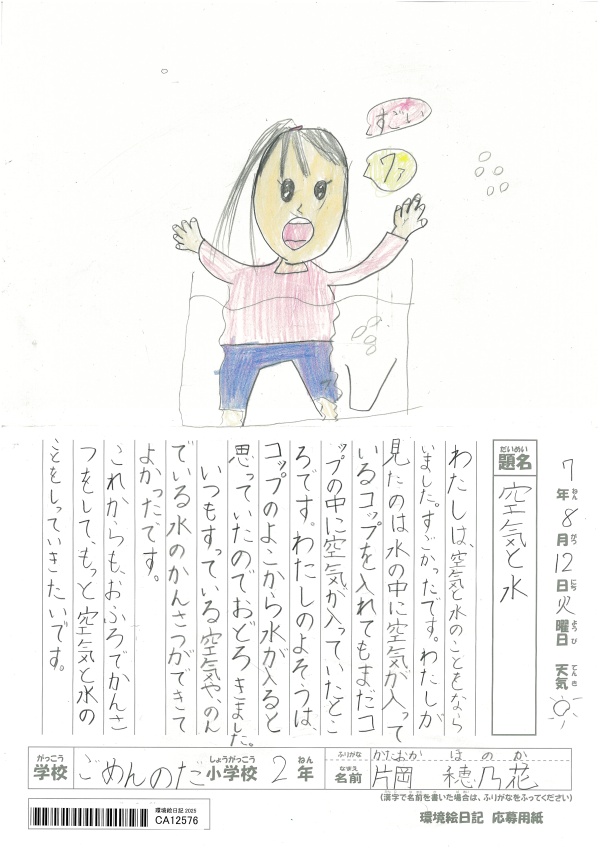 すごい
ワァ
7年8月12日火曜日 天気
ねん がつ にち ようび てんき
だいめい
題名
空気と水
わたしは、空気と水のことをなら
いました。すごかったです。わたしが
見たのは水の中に空気が入って
いるコップを入れてもまだコ
ップの中に空気が入っていたとこ
ろです。わたしのよそうは、
コップのよこから水が入ると
思っていたのでおどろきました。
いつもすっている空気や、のん
でいる水のかんさつができて
よかったです。
これからも、おふろでかんさ
つをして、もっと空気と水の
ことをしっていきたいです。
がっこう しょうがっこう ねん
学校 ごめんのだ小学校 2年
ふりがな かたおか ほのか
なまえ
名前 片岡 穂乃花
(漢字で名前を書いた場合は、ふりがなをふってください)
環境絵日記 2025
CA12576
環境絵日記 応募用紙